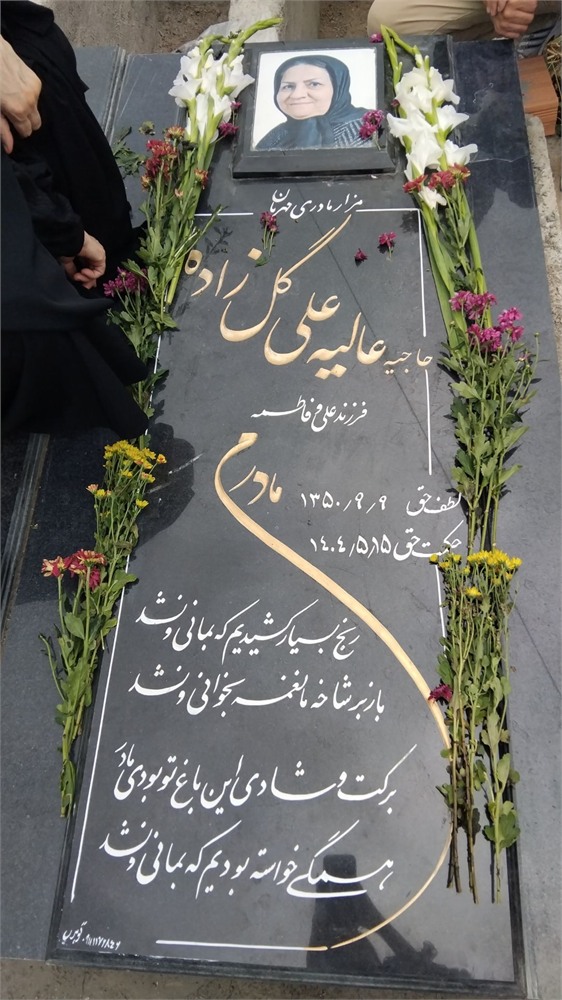 مزار مادری مهربان
حاجیه عالیه علی گل زاده
فرزند علی و فاطمه
مادرم
لطف حق ۱۳۵۰/۹/۹
حکمت حق ۱۴۰۴/۵/۱۵
رنج بسیار کشیدیم که بمانی و نشد
باز بر شاخه ما نغمه بخوانی و نشد
برکت و شادی این باغ تو بودی مادر
همگی خواسته بودیم که بمانی و نشد